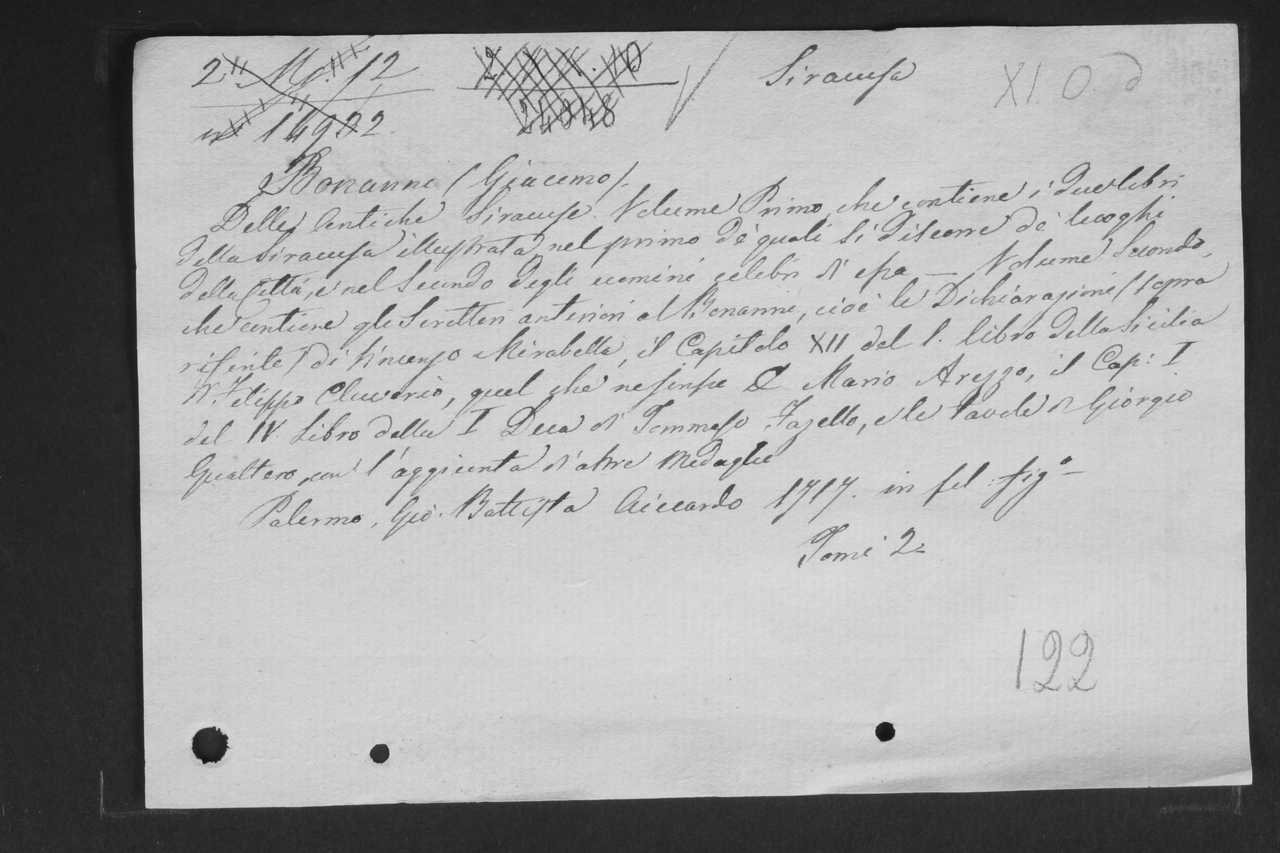 Siracusa
XI. O. d
14902.
24048
Bonanni (Giacomo).
Delle Antiche Siracuse. Volume Primo, che contiene i due libri
della Siracusa illustrata, nel primo de' quali si discorre de' luoghi
della Città, e nel Secondo degli uomini celebri di essa — Volume Secondo,
che contiene gli Scrittori anteriori al Bonanni, cioè le Dichiarazioni (sopra
riferite) di Vincenzo Mirabella, il Capitolo XII del 1. libro della Sicilia
di Filippo Cluverio, quel che ne scrisse C Mario Arezzo, il Cap: I
del IV. Libro della I Deca di Tommaso Fazello, e le Tavole di Giorgio
Gualtero, con l'aggiunta d'altre Medaglie
Palermo, Gio. Battista Aiccardo 1717. in fol. fig.o
Tomi 2
122